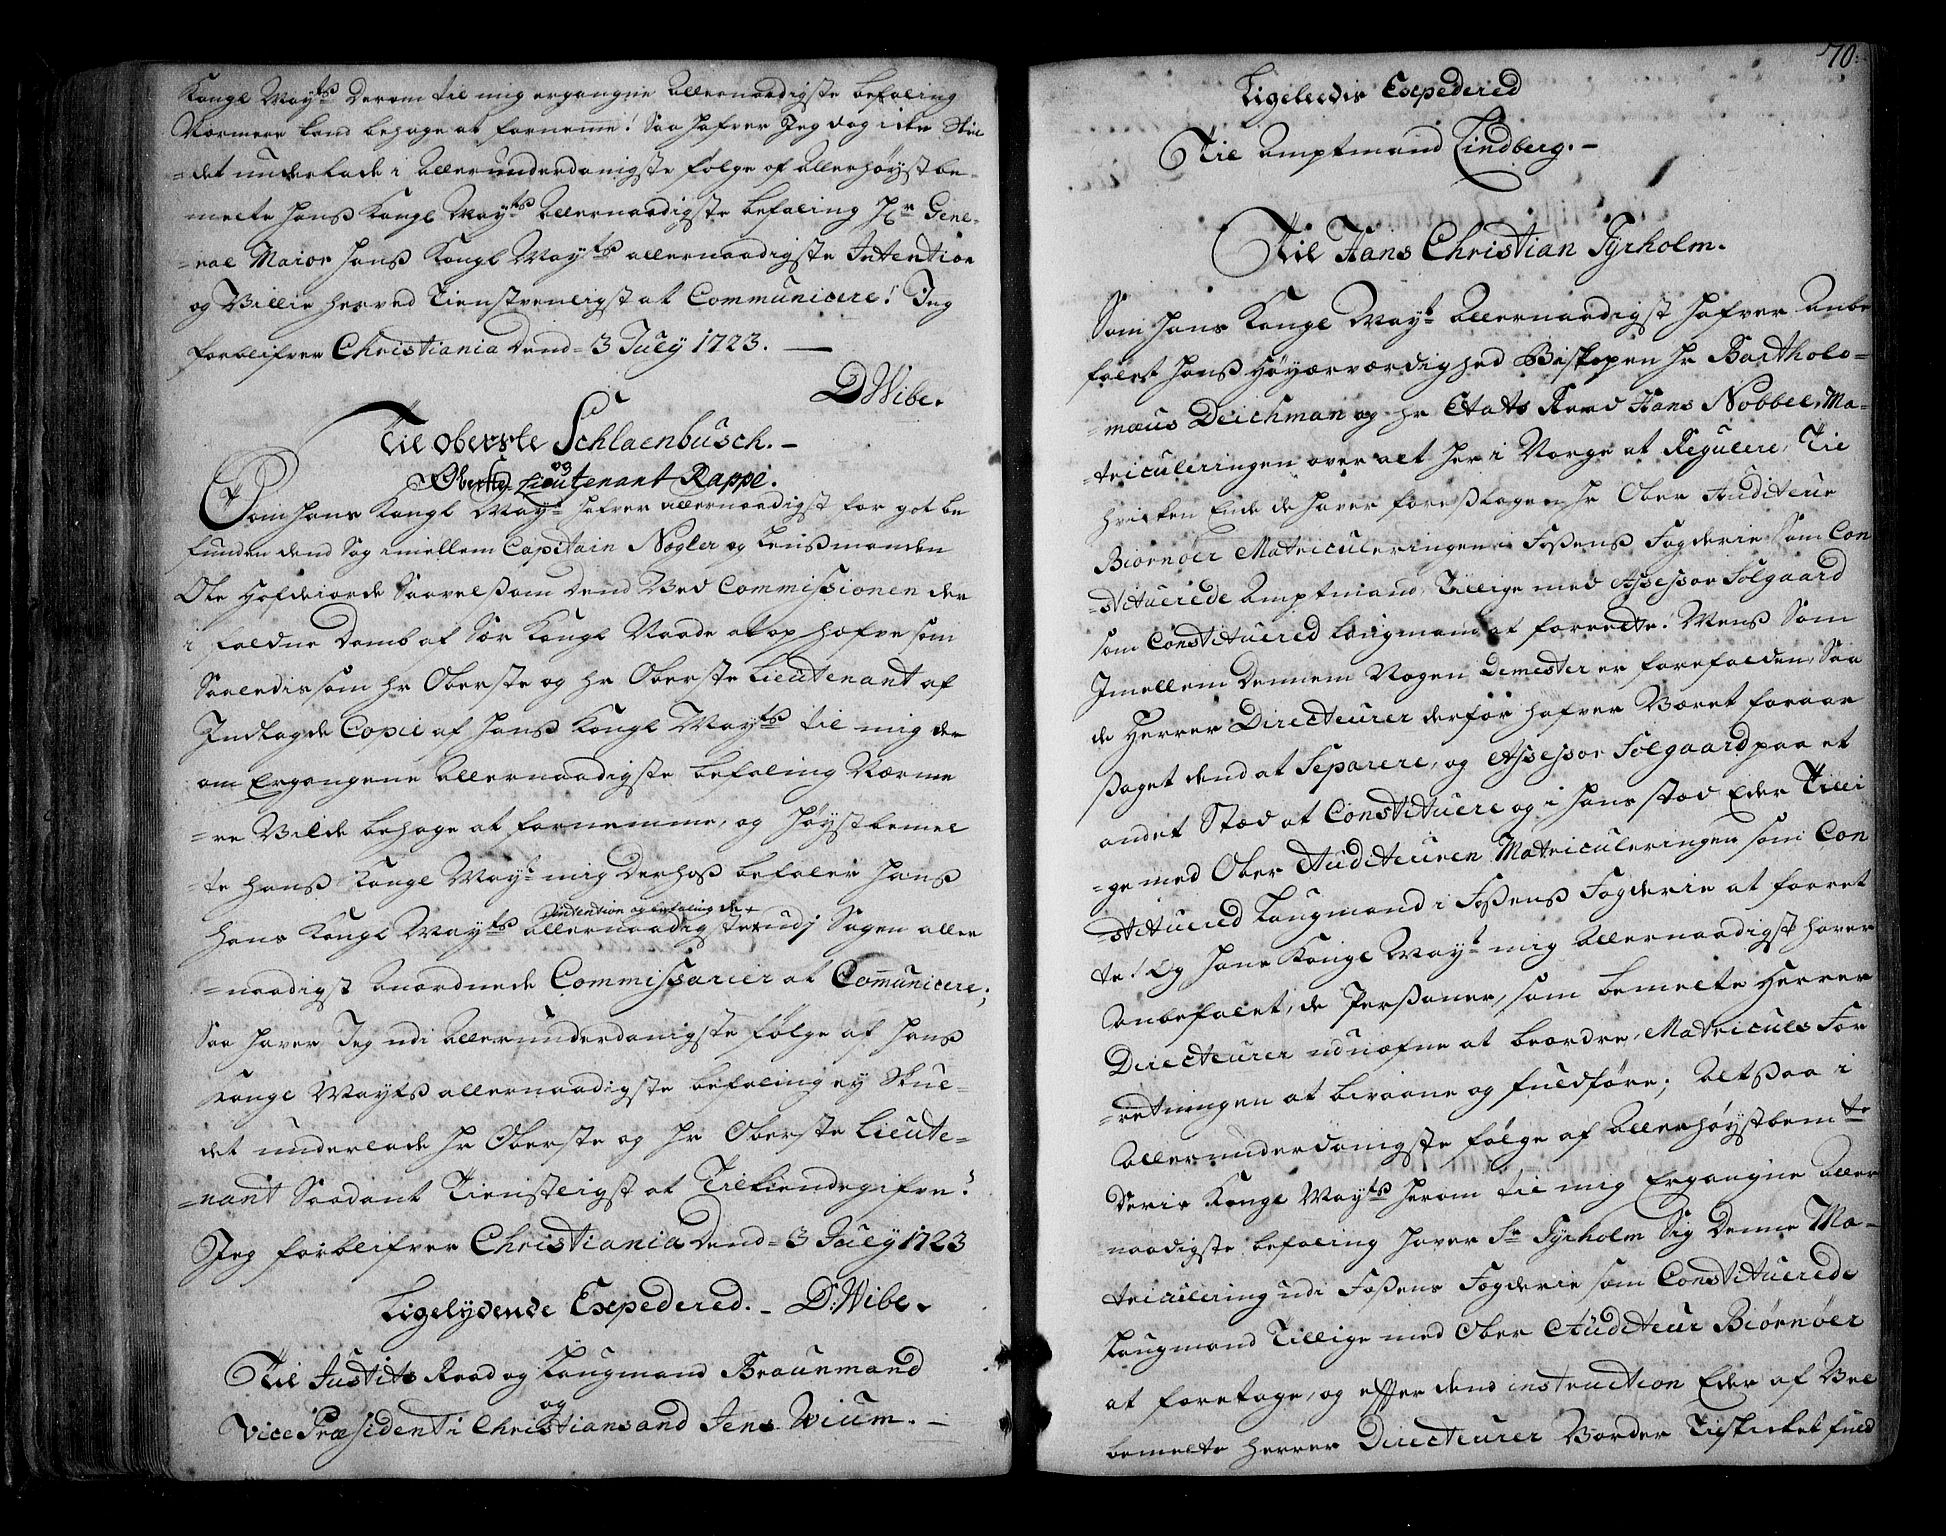 Kongl Mayts Derom til mig ergangne Allernaadigste befaling
Nærmere kand behage at fornemme! Saa hafver Jeg dog icke Skul
=det underlade i Allerunderdanigste følge af Allerhøystbe-
melte Hans Kongl Mayts Allernaadigste befaling Hr Gene-
=ral Maior Hans Kongl Mayts allernaadigste Intention
og Villie herved Tienstvenligst at Communicere! Jeg
forblifver Christiania Dend = 3 July 1723. —
DWibe.
Til Oberste Schlaenbusch. —
og
Oberste Lieutenant Rappe.
Som Hans Kongl Mayt hafver allernaadigst for got be
funden dend Sag imellem Capitain Nøgler og Lensmanden
Ole Hofdeiorde Saavelsom Dend Ved Commissionen der
i faldne Domb af Sær Kongl Naade at ophæfve som
Saaledis som hr Oberste og hr Oberste Lieutenant af
Indlagde Copie af Hans Kongl Mayts til mig der
om Ergangene Allernaadigste befaling Nærme
=re Vilde behage at fornemme, og Høystbemel
=te Hans Kongl Mayt mig Derhos befaler Hans
Intention og befaling de
Hans Kongl Mayts allernaadigste udj Sagen aller
=naadigst anordnede Commissarier at Communicere;
Saa haver Jeg udi Allerunderdanigste følge af Hans
Kongl Mayts allernaadigste befaling ey Skul-
det underlade hr Oberste og hr Oberste Lieute-
=nant Saadant Tienstligst at Tilkiendegifve!
Jeg forblifver Christiania Dend = 3 July 1723
Ligelydende Expedered. - D:Wibe.
Til Justits Raad og Laugmand Braunmand
og
Vice Præsident i Christiansand Jens Wium. —
70.
Ligeledis Expedered
Til Amptmand Lindberg. —
Til Hans Christian Tyrholm.
Som Hans Kongl Mayt Allernaadigst hafver Anbe
falet Hans Høyærværdighed Biskopen Hr Bartholo=
=mæus Deichman og Hr Etats Raad Hans Nobbel, Ma-
=triculeringen over alt her i Norge at Regulere, Til
hvilken Ende de haver foreslagen Hr Ober Auditeur
Biørnøer Matriculeringen i Fosens Fogderie Som Con
=stituerede Amptmand, Tillige med Assessor Solgaard
som Constituered Laugmand at forrette. Mens Som
Imellem Dennem Nogen Demesler er forefalden, Saa
de Herrer Directeurer derfor hafver Været foraar
saget dend at Separere, og Assessor Solgaard paa et
andet Stæd at Constituere og i Hans stæd Eder Tilli
=ge med Ober Auditeuren Matriculeringen som Con
=stituered Laugmand i Fosens Fogderie at forret
te! Og Hans Kongl Mayt mig Allernaadigst haver
Anbefalet, de Personer, som bemelte Herrer
Directeurer udnæfne at beordre, Matriculs For
=retningen at bivaane og fuldføre; Altsaa i
Allerunderdanigste følge af Allerhøystbemte
Deris Kongl Mayts herom til mig Ergangne Aller
=naadigste befaling haver Sr Tyrholm Sig Denne Ma-
triculering udi Fosens Fogderie som Constituerede
Laugmand Tillige med Ober Auditeur Biørnøer
at foretage, og efter dend instruction Eder af Vel
bemelte Herrer Directeurer Vorder Tilskicket fuld